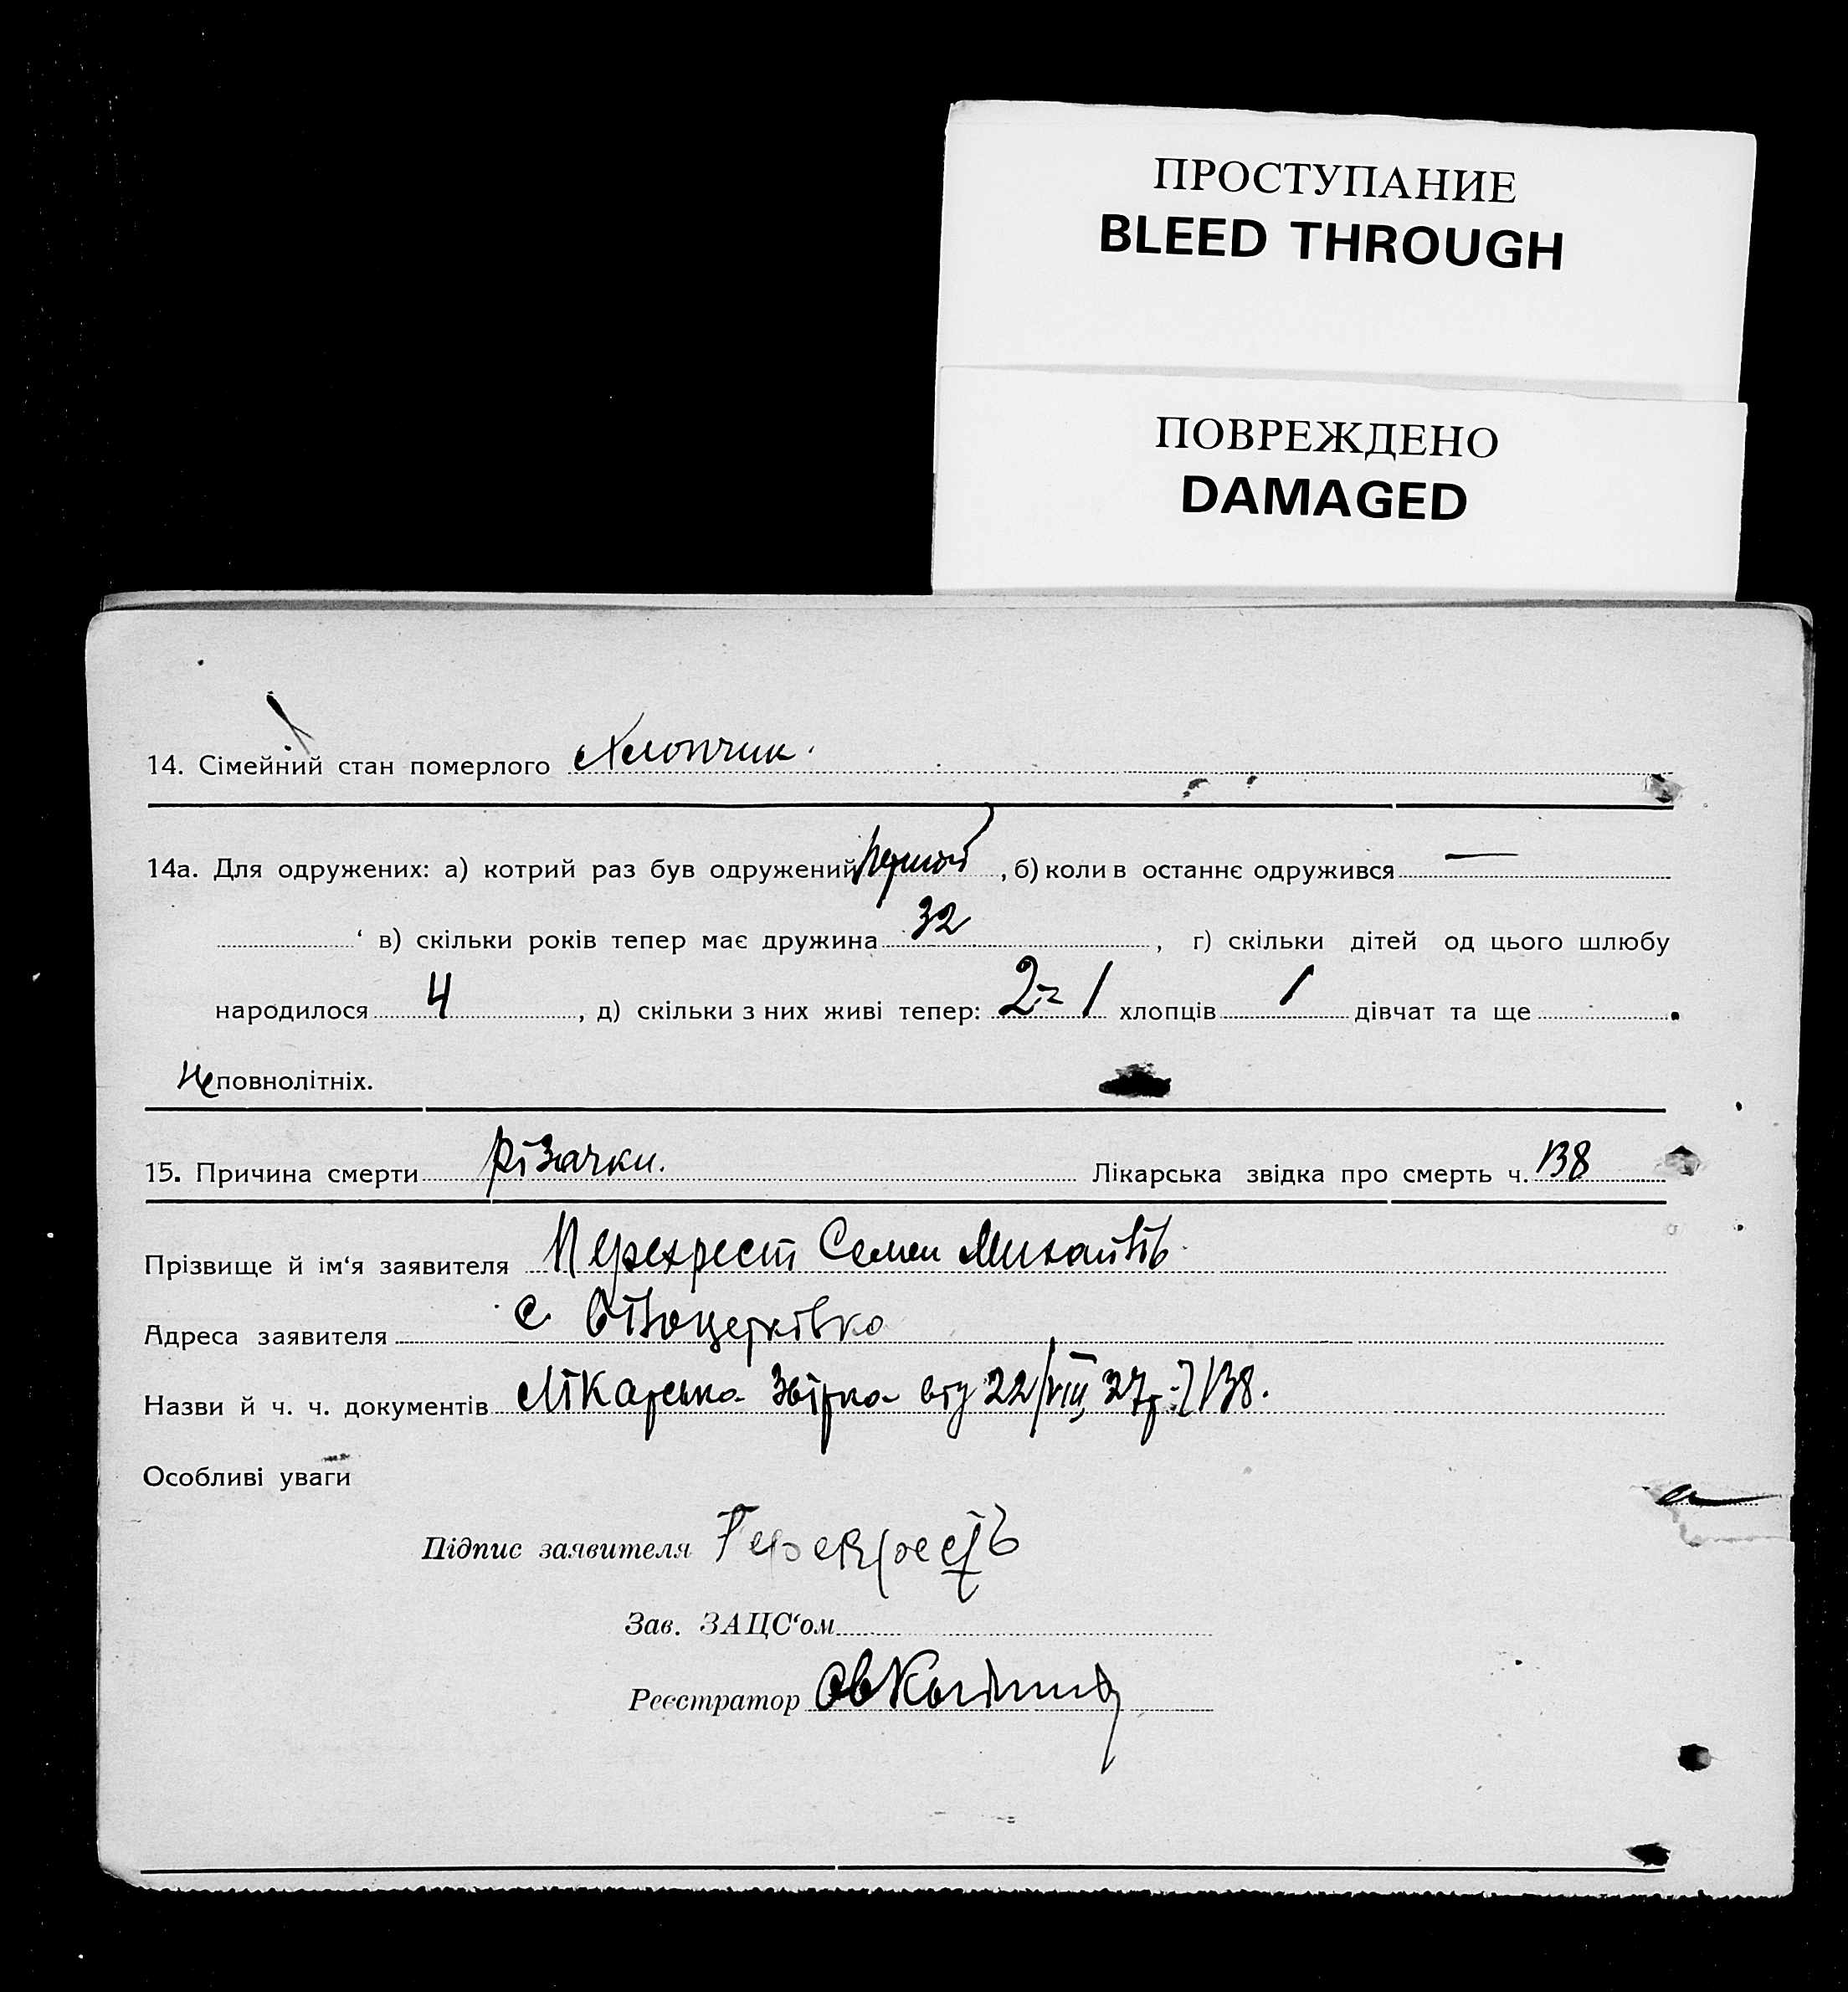 ПРОСТУПАНИЕ
BLEED THROUGH
ПОВРЕЖДЕНО
DAMAGED
14. Сімейний стан померлого Хлопчик.
14а. Для одружених: а) котрий раз був одружений перший, б) коли в останнє одружився —
‘ в) скільки років тепер має дружина 32, г) скільки дітей од цього шлюбу
народилося 4, д) скільки з них живі тепер: 2-1 хлопців 1 дівчат та ще
неповнолітніх.
15. Причина смерти різачки. Лікарська звідка про смерть ч. 138
Прізвище й ім‘я заявителя Перехрест Семен Михайлів
Адреса заявителя с. Білоцерківка
Назви й ч. ч. документів Лікарська Звірка від 22/VIII 27р. 138.
Особливі уваги
Підпис заявителя Перехрестъ
Зав. ЗАЦС‘ом
Реєстратор